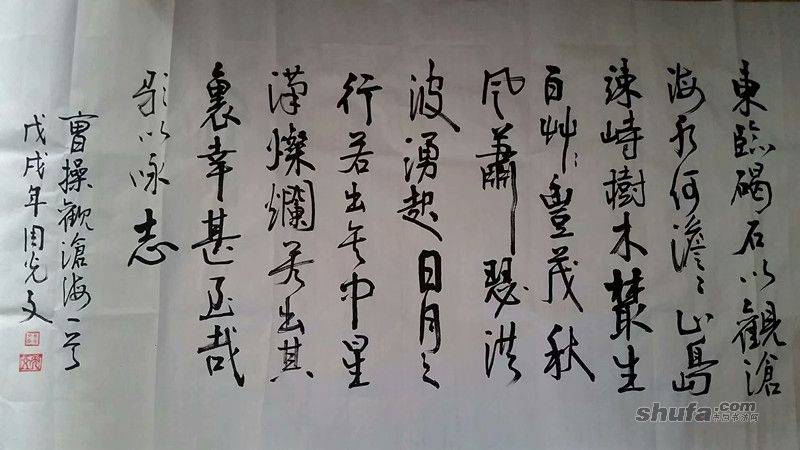 東臨碣石以觀滄
海水何澹〻山島
竦峙樹木叢生
百艸豐茂秋
風蕭瑟洪
波湧起日月之
行若出其中星
漢燦爛若出其
裏幸甚至哉
歌以咏志
曹操觀滄海一首
戊戌年周光文
shufa.com